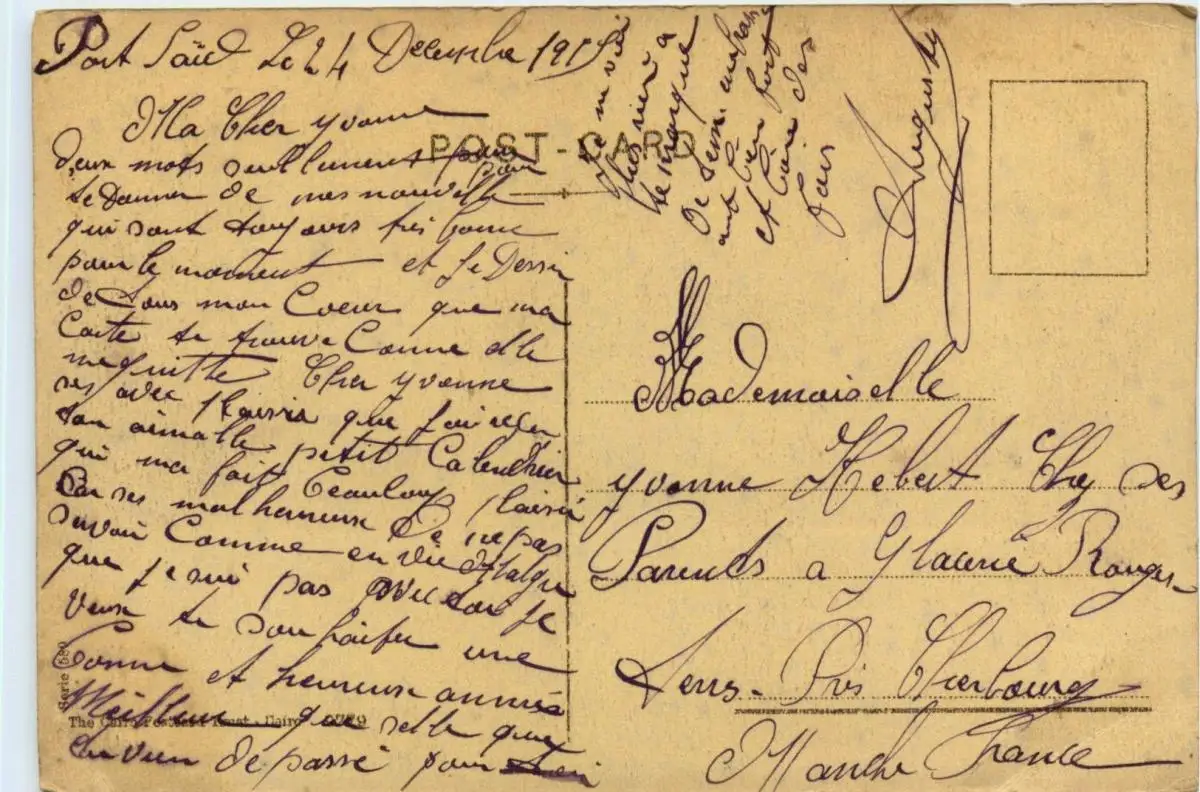 Port Saïd Le 24 Decembre 1915
Ma Cher yvonne
deux mots seullement pour
te Donner de mes nouvelle
qui sont toujours très bonne
pour le moment et je Desir
de tous mon Coeur que ma
Carte te trouve Comme elle
me quitte Cher yvonne
ses avec Plaisir que j'ai reçu
ton aimable petit Calendrier
qui ma fait beaucoup plaisir
Car ses malheureux De ne pas
savoir Comme en vie
que je sui pas avec toi je
veux te souhaiter une
bonne et heureuse année
Meilleur que selle que
tu vien de passé pour
Je ne voi
plus rien a
te marque
De
ant bien fort
et loin des
pas
Auguste
POST-CARD
Mademaiselle
yvonne Hebert Chez ses
Parents a Glacerie Rouges-
Terres- Près Cherbourg
Manche France
Serie 589
The Cairo Postcard Trust - Cairo